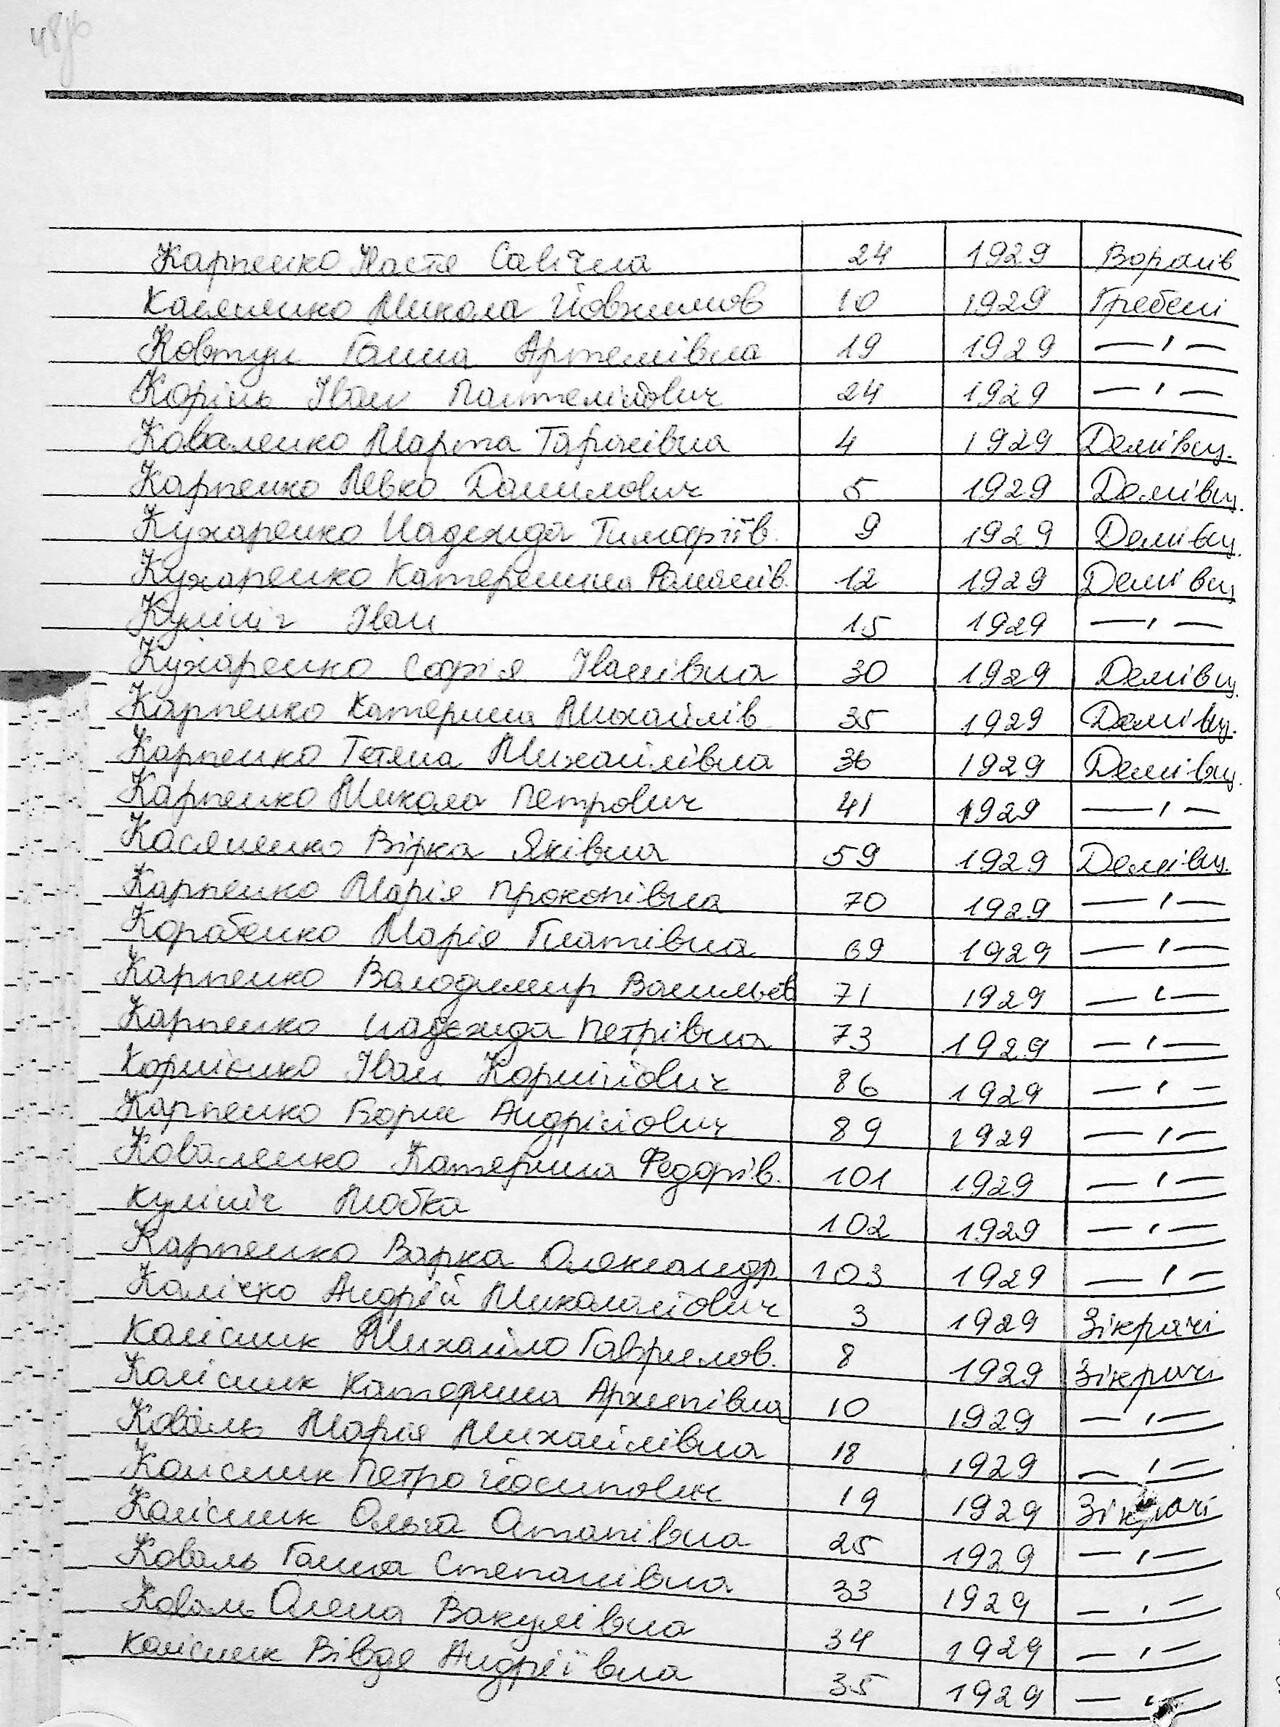 Карпенко Настя Савівна 24 1929 Воронів
Касяненко Микола Йовхимов 10 1929 Гребені
Ковтун Ганна Артемівна 19 1929 —"—
Корінь Іван Пантелійович 24 1929 —"—
Коваленко Марта Тарасівна 4 1929 Демівщ.
Карпенко Левко Данилович 5 1929 Демівщ.
Кухаренко Надежда Тимофіїв. 9 1929 Демівщ.
Кухаренко Катеренина Романів. 12 1929 Демівщ
Кулініч Іван 15 1929 —"—
Кухаренко Софія Іванівна 30 1929 Демівщ.
Карпенко Катерина Михайлів. 35 1929 Демівщ.
Карпенко Тетяна Михайлівна 36 1929 Демівщ.
Карпенко Микола Петрович 41 1929 —"—
Касяненко Вірка Яківна 59 1929 Демівщ.
Карпенко Марія Прокопівна 70 1929 —"—
Корабенко Марія Гнатівна 69 1929 —"—
Карпенко Володимир Васильєв 71 1929 —"—
Карпенко Надежда Петрівна 73 1929 —"—
Корнієнко Іван Корнійович 86 1929 —"—
Карпенко Борис Андрійович 89 1929 —"—
Коваленко Катерина Федорів. 101 1929 —"—
Кулініч Любка 102 1929 —"—
Карпенко Варка Олександр. 103 1929 —"—
Калічко Андрій Миколайович 3 1929 Зікрачі
Колісник Михайло Гаврилов. 8 1929 Зікрачі
Колісник Катерина Архипівна 10 1929 —"—
Коваль Марія Михайлівна 18 1929 —"—
Колісник Петро Йосипович 19 1929 Зікрачі
Колісник Ольга Остапівна 25 1929 —"—
Коваль Ганна Степанівна 33 1929 —"—
Коваль Олена Вакулівна 34 1929 —"—
Колісник Вівдя Андріївна 35 1929 —"—